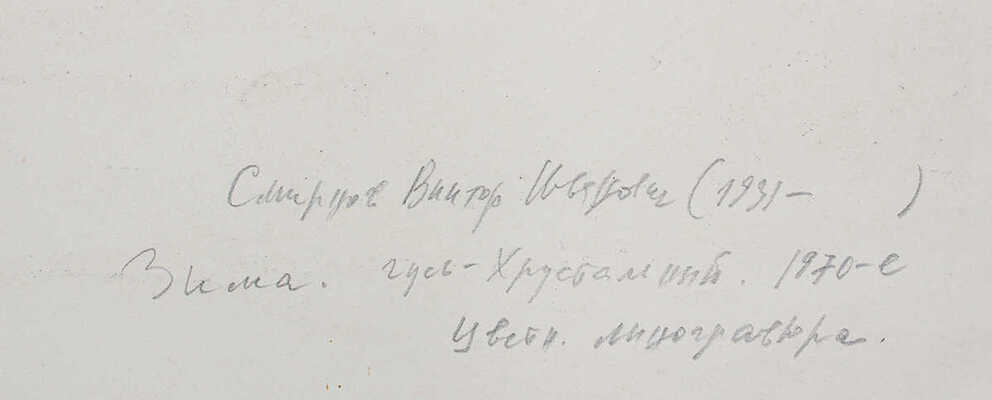 Смирнов Виктор Иванович (1931- )
Зима. гусь-Хрустальный. 1970-е
Цветн. линогравюра.